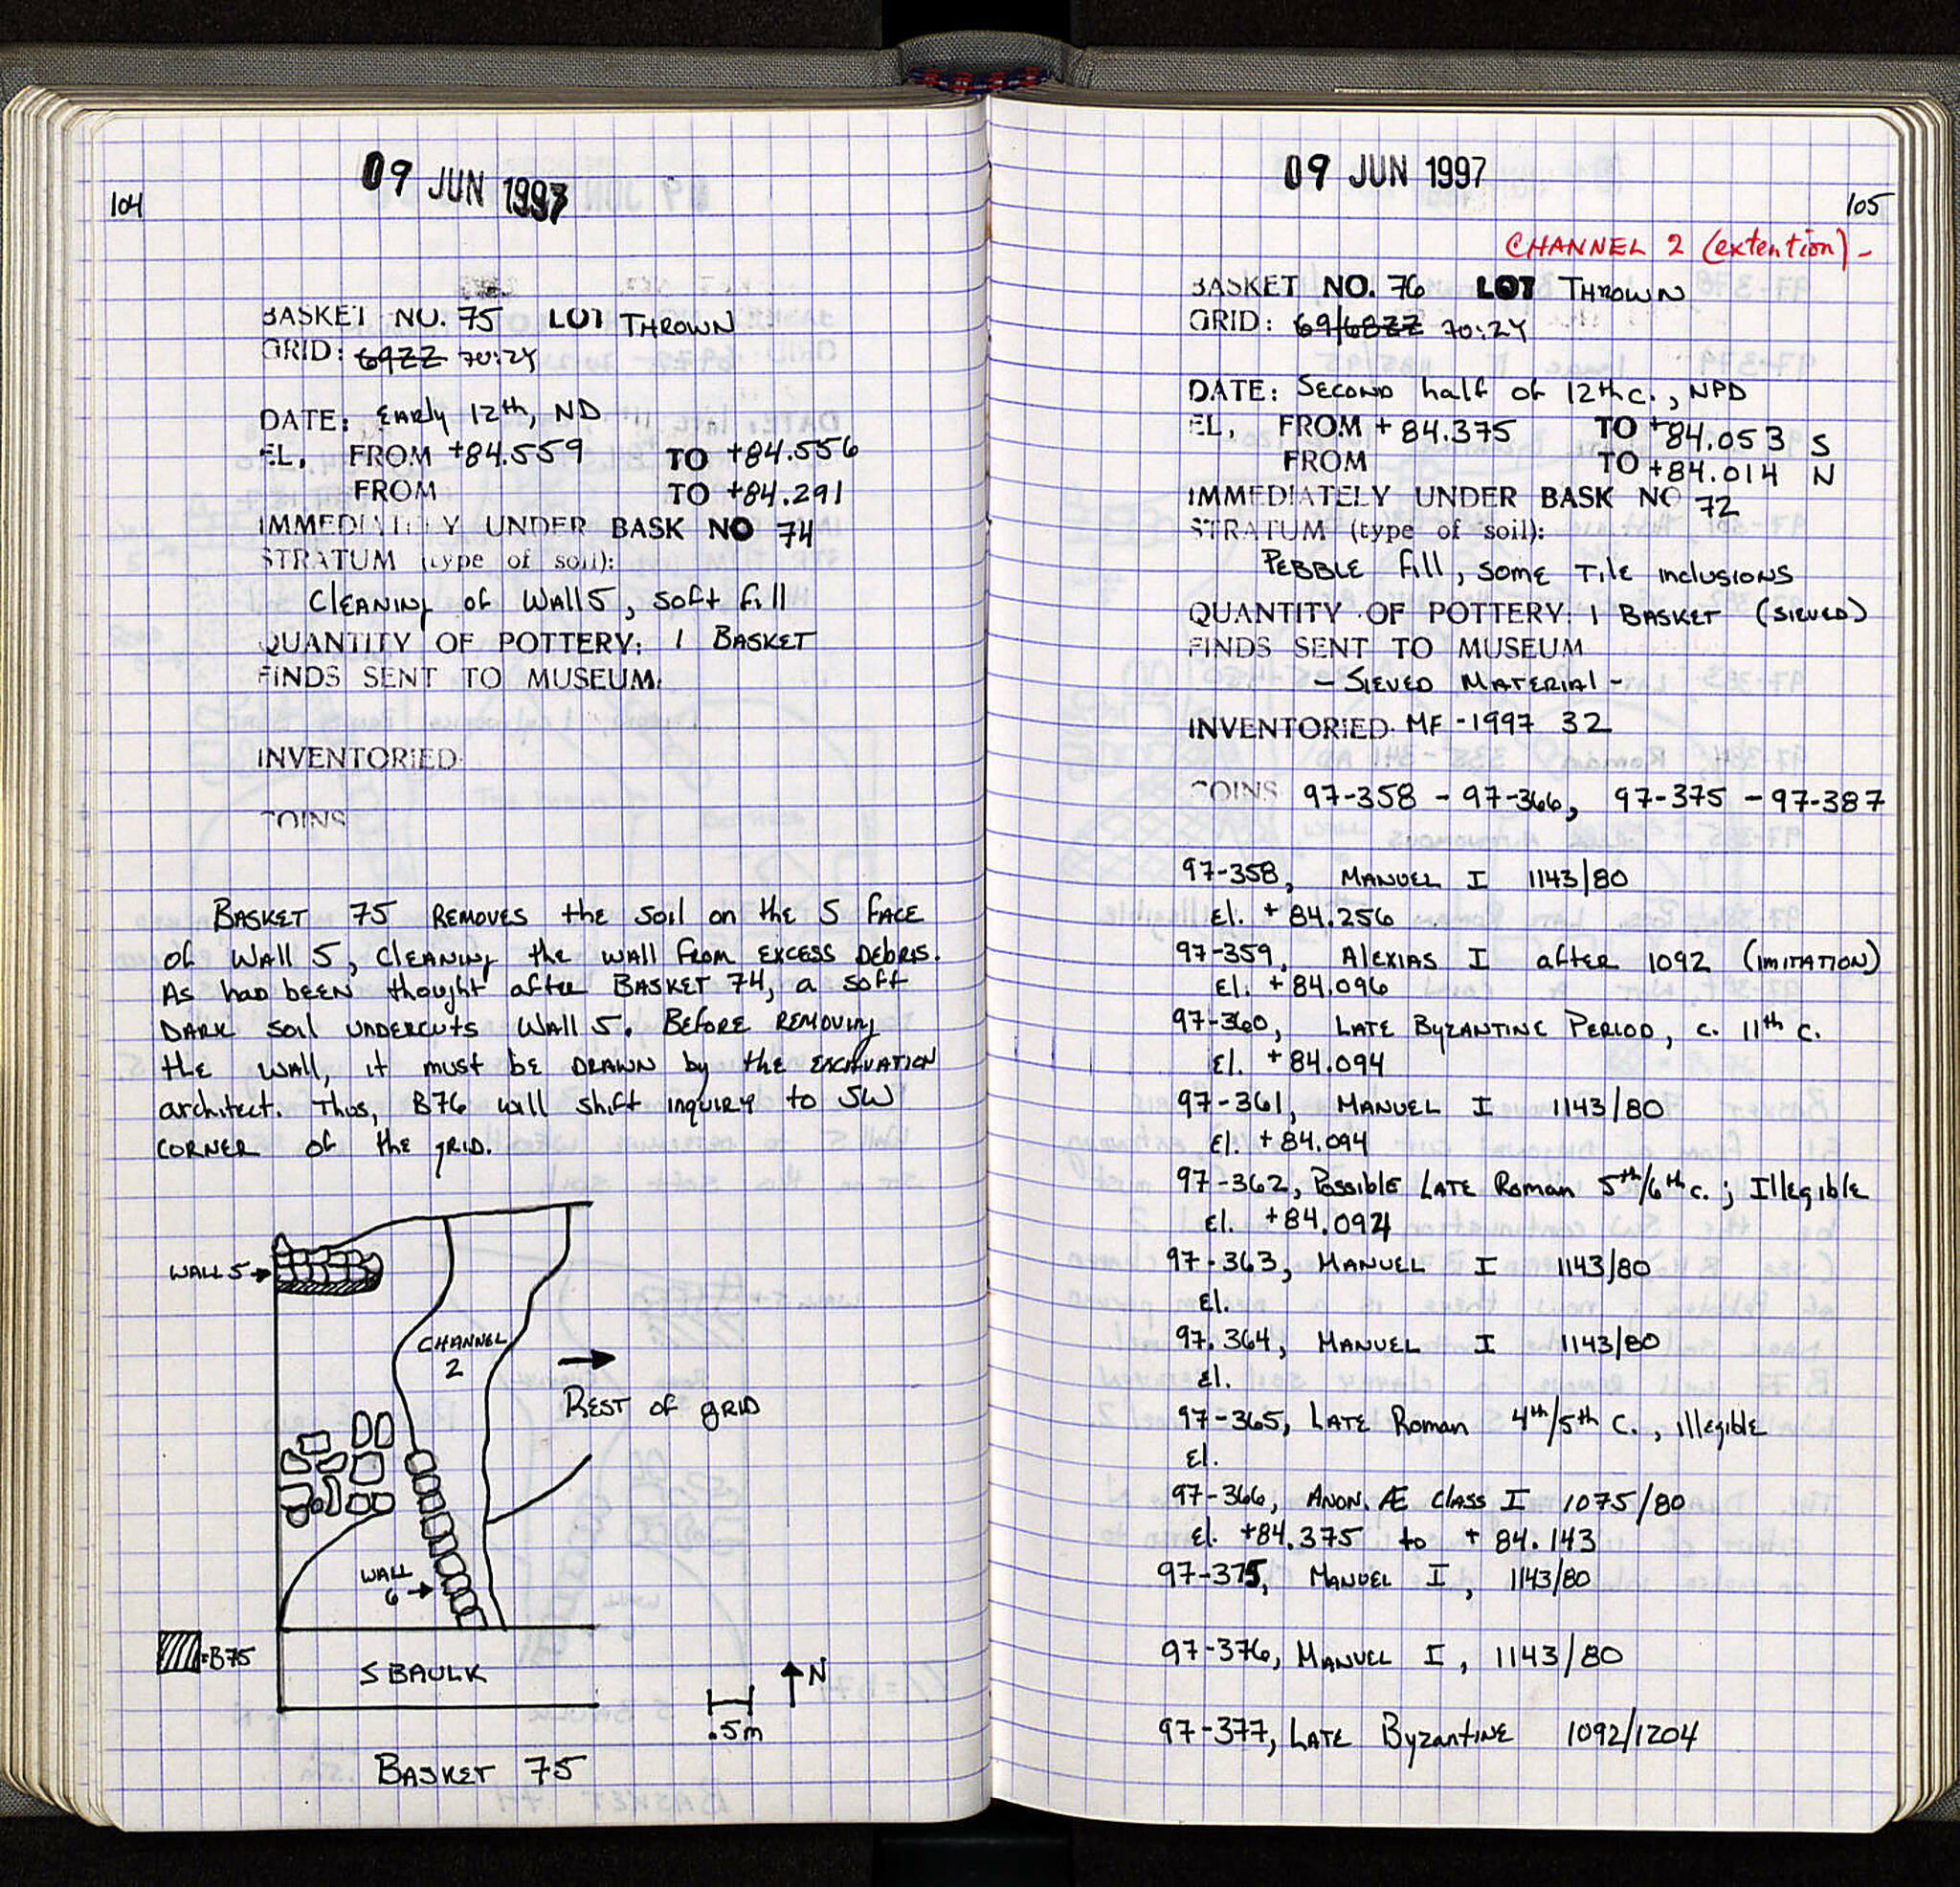 104
09 JUN 1997
BASKET NO. 75 LOT THROWN
GRID: 69ZZ 70:2Y
DATE: Early 12th, ND
EL, FROM +84.559 TO +84.556
FROM TO +84.291
IMMEDIATELY UNDER BASK NO 74
STRATUM (type of soil):
Cleaning of Wall 5, soft fill
QUANTITY OF POTTERY: 1 BASKET
FINDS SENT TO MUSEUM:
INVENTORIED
COINS
BASKET 75 REMOVES the soil on the S FACE
of WALL 5, CLEANING the WALL FROM EXCESS DEBRIS.
AS had BEEN thought after BASKET 74, a SOFT
DARK soil UNDERCUTS WALL 5. BEFORE REMOVING
the WALL, it must be DRAWN by the EXCAVATION
architect. Thus, B76 will shift inquiry to SW
CORNER of the GRID.
WALL 5
CHANNEL
2
REST of GRID
WALL
6
=B75
S BAULK
N
.5m
BASKET 75
09 JUN 1997
105
CHANNEL 2 (extention) -
BASKET NO. 76 LOT THROWN
GRID: 69/68ZZ 70:2Y
DATE: Second half of 12th c., NPD
EL, FROM + 84.375 TO +84.053 S
FROM TO +84.014 N
IMMEDIATELY UNDER BASK NO 72
STRATUM (type of soil):
PEBBLE fill, some Tile inclusions
QUANTITY OF POTTERY: 1 BASKET (SIEVED)
FINDS SENT TO MUSEUM
- SIEVED MATERIAL -
INVENTORIED MF -1997 32
COINS 97-358 - 97-366, 97-375 - 97-387
97-358, MANUEL I 1143/80
El. + 84.256
97-359, ALEXIAS I after 1092 (IMITATION)
El. + 84.096
97-360, LATE BYZANTINE PERIOD, c. 11th c.
El. + 84.094
97-361, MANUEL I 1143/80
El. + 84.094
97-362, Possible LATE Roman 5th/6th c.; Illegible
El. +84.094
97-363, MANUEL I 1143/80
El.
97.364, MANUEL I 1143/80
El.
97-365, LATE Roman 4th/5th C., illegible
El.
97-366, ANON. Æ CLASS I 1075/80
El. +84.375 to + 84.143
97-375, MANUEL I, 1143/80
97-376, MANUEL I, 1143/80
97-377, LATE Byzantine 1092/1204